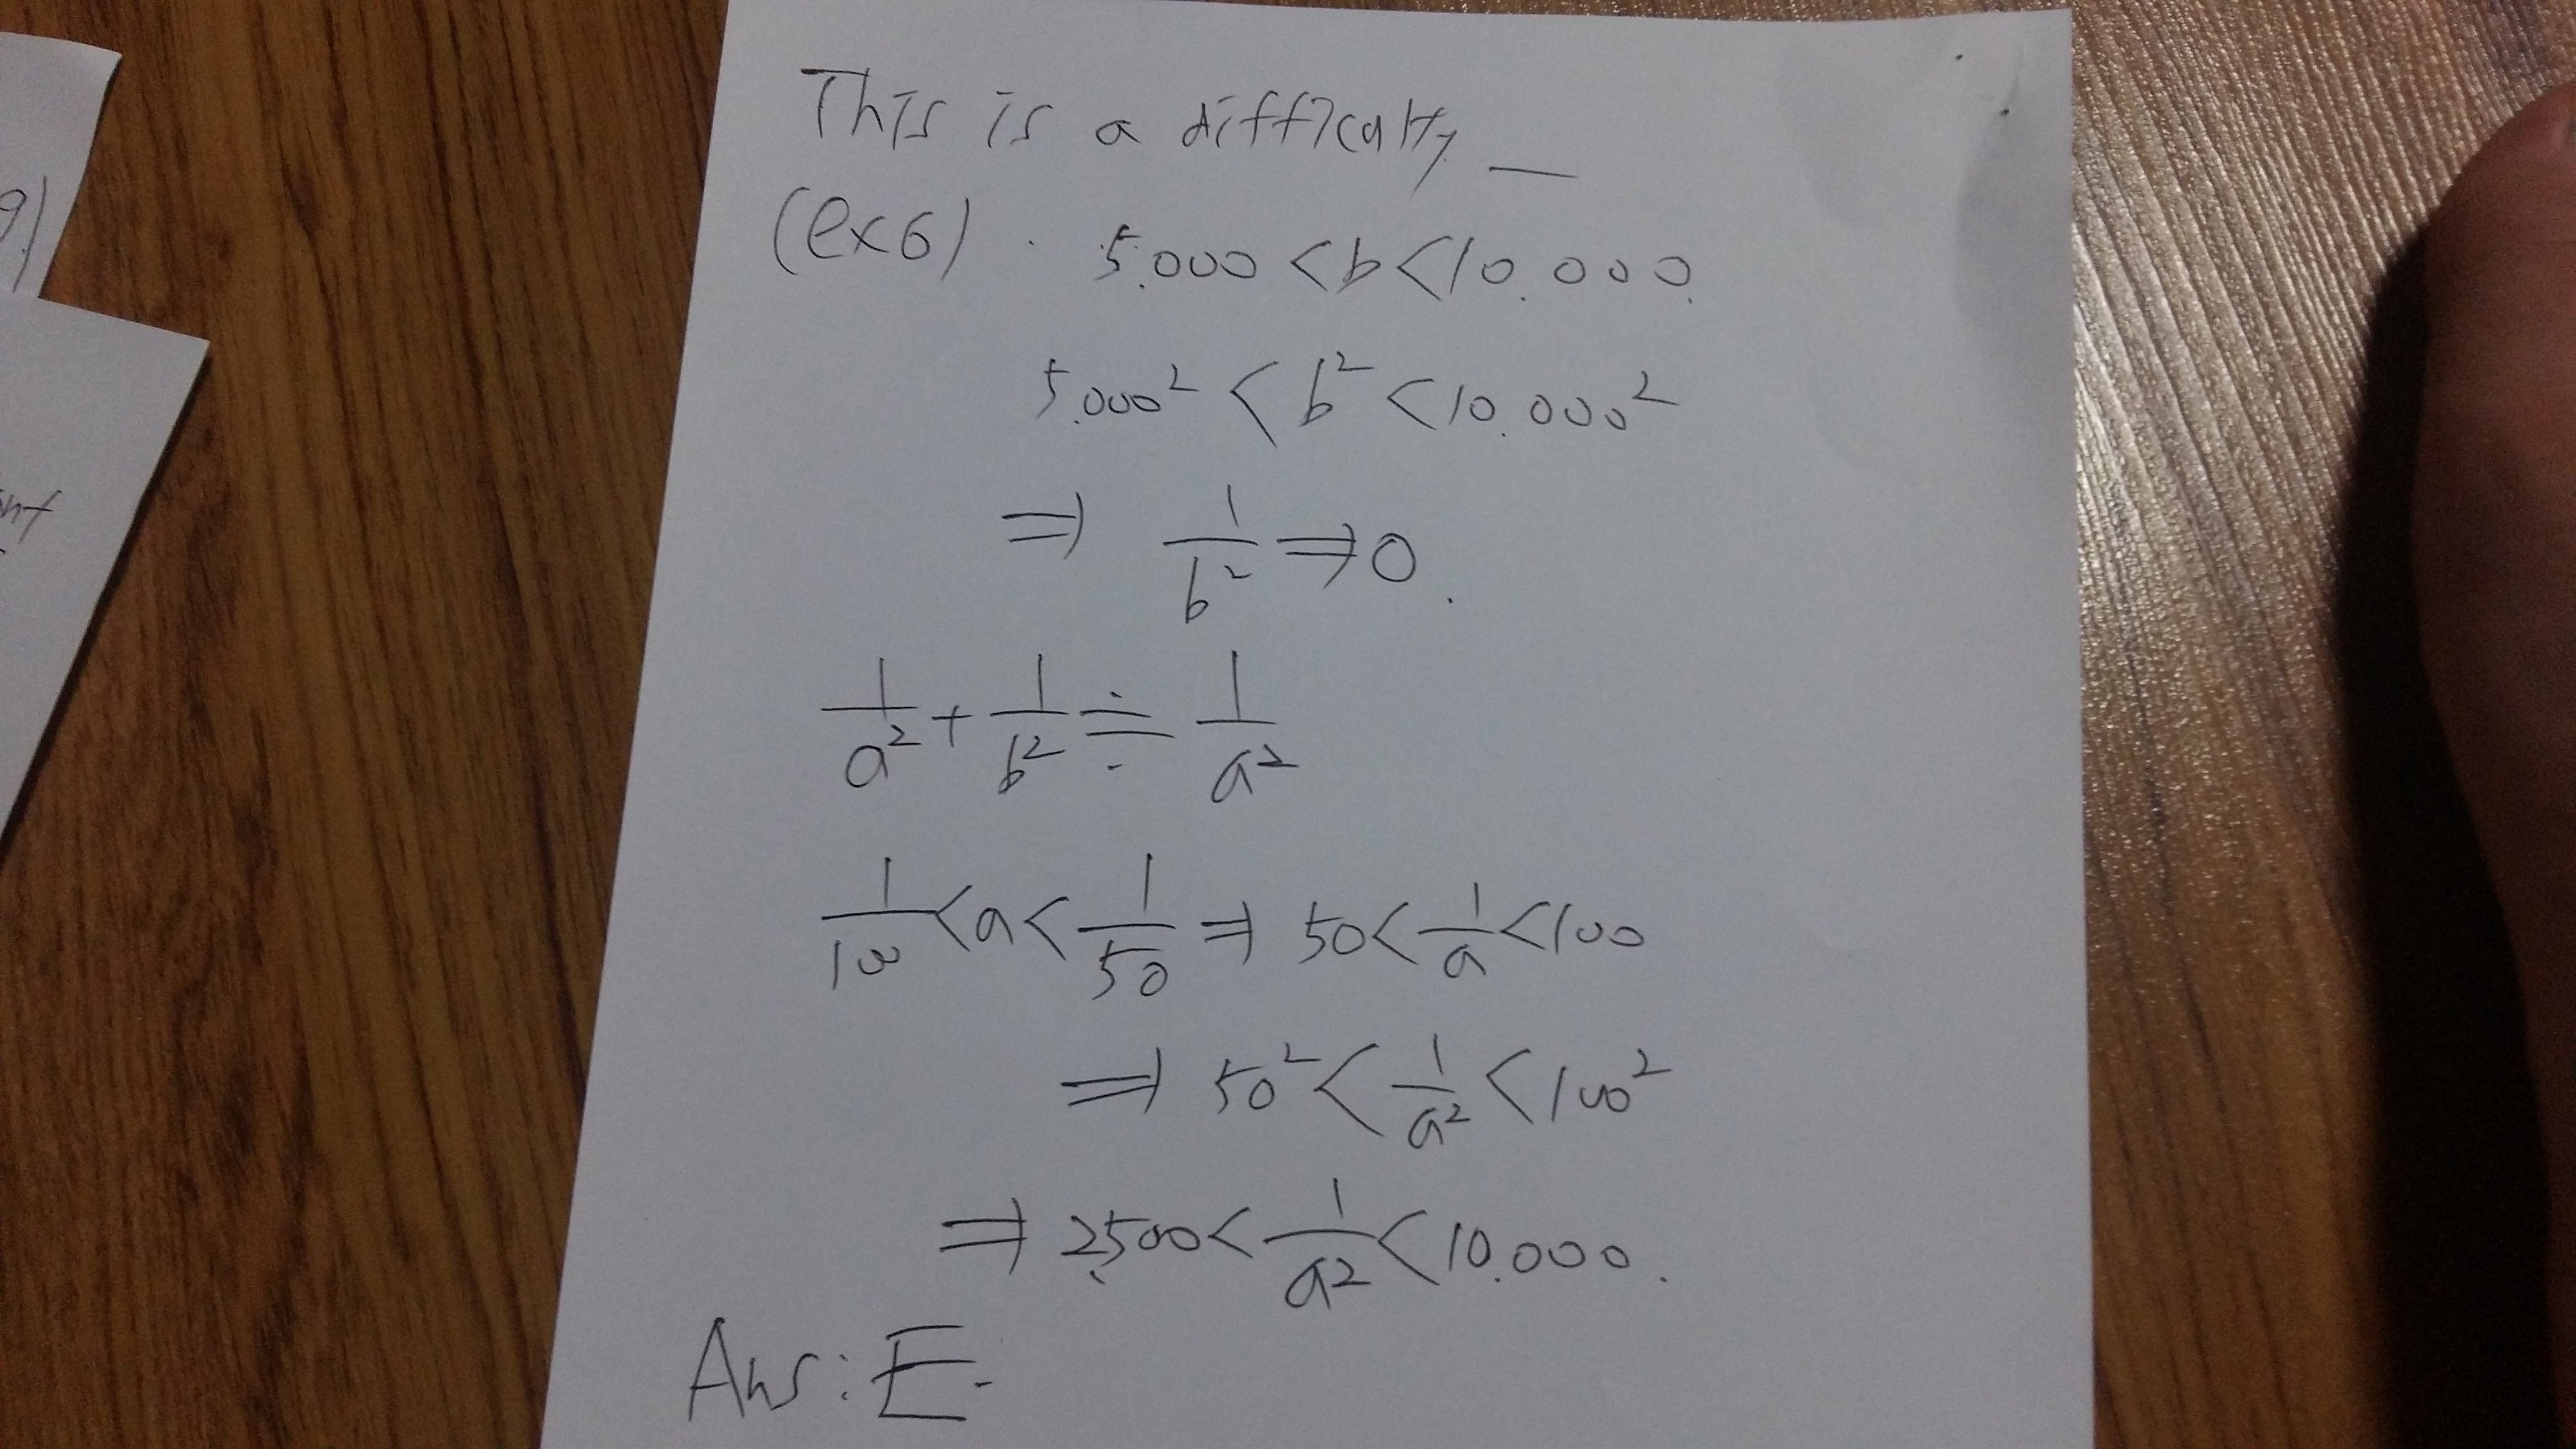 9)
This is a difficalty
(ex6) . 5.000 < b < 10.000.
5.000² < b² < 10.000²
⇒ 1/b² ⇒ 0.
1/a² + 1/b² ≑ 1/a²
1/100 < a < 1/50 ⇒ 50 < 1/a < 100
⇒ 50² < 1/a² < 100²
⇒ 2,500 < 1/a² < 10.000.
Ans: E.